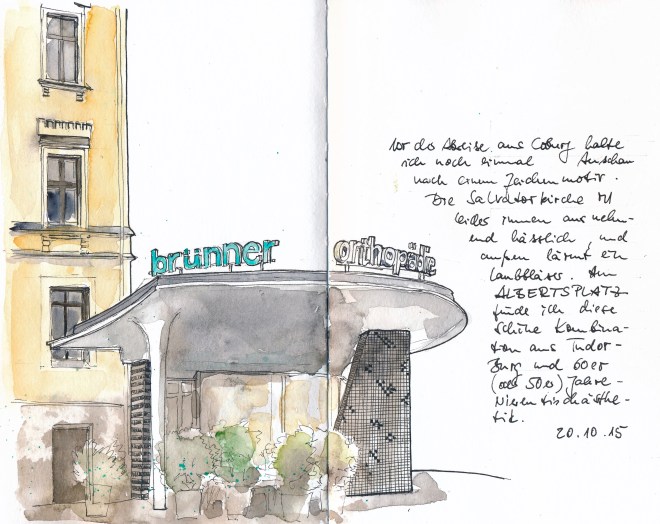 brünner orthopädie
Vor der Abreise aus Coburg halte
ich noch einmal Ausschau
nach einem Zeichenmotiv.
Die Salvatorkirche ist
leider innen ausnehm-
end hässlich, und
außen lärmt ein
Laubbläser. Am
ALBERTSPLATZ
finde ich diese
schöne Kombina-
tion aus Tudor-
Burg und 60er
(oder 50er) Jahre-
Nierentischästhe-
tik.
20.10.15